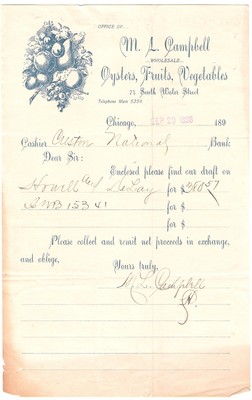 OFFICE OF
M. L. Campbell
WHOLESALE
Oysters, Fruits, Vegetables
75 South Water Street
Telephone Main 5256
Chicago, SEP 29 1898 189
Cashier Creston National Bank
Dear Sir:
Enclosed please find our draft on
Howell and DeLay for $ 38057
for $
for $
Please collect and remit net proceeds in exchange,
and oblige,
Yours truly,
M. L. Campbell